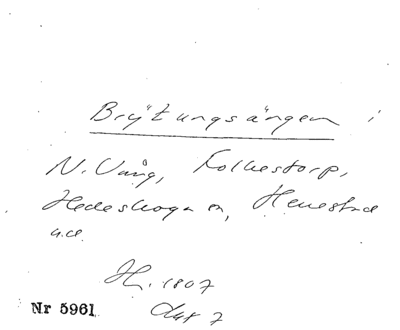 Brytningsängen i
N. Vång, Folkestorp,
Hedeskoga, Henestad
H. 1807
Akt 7
Nr 5961